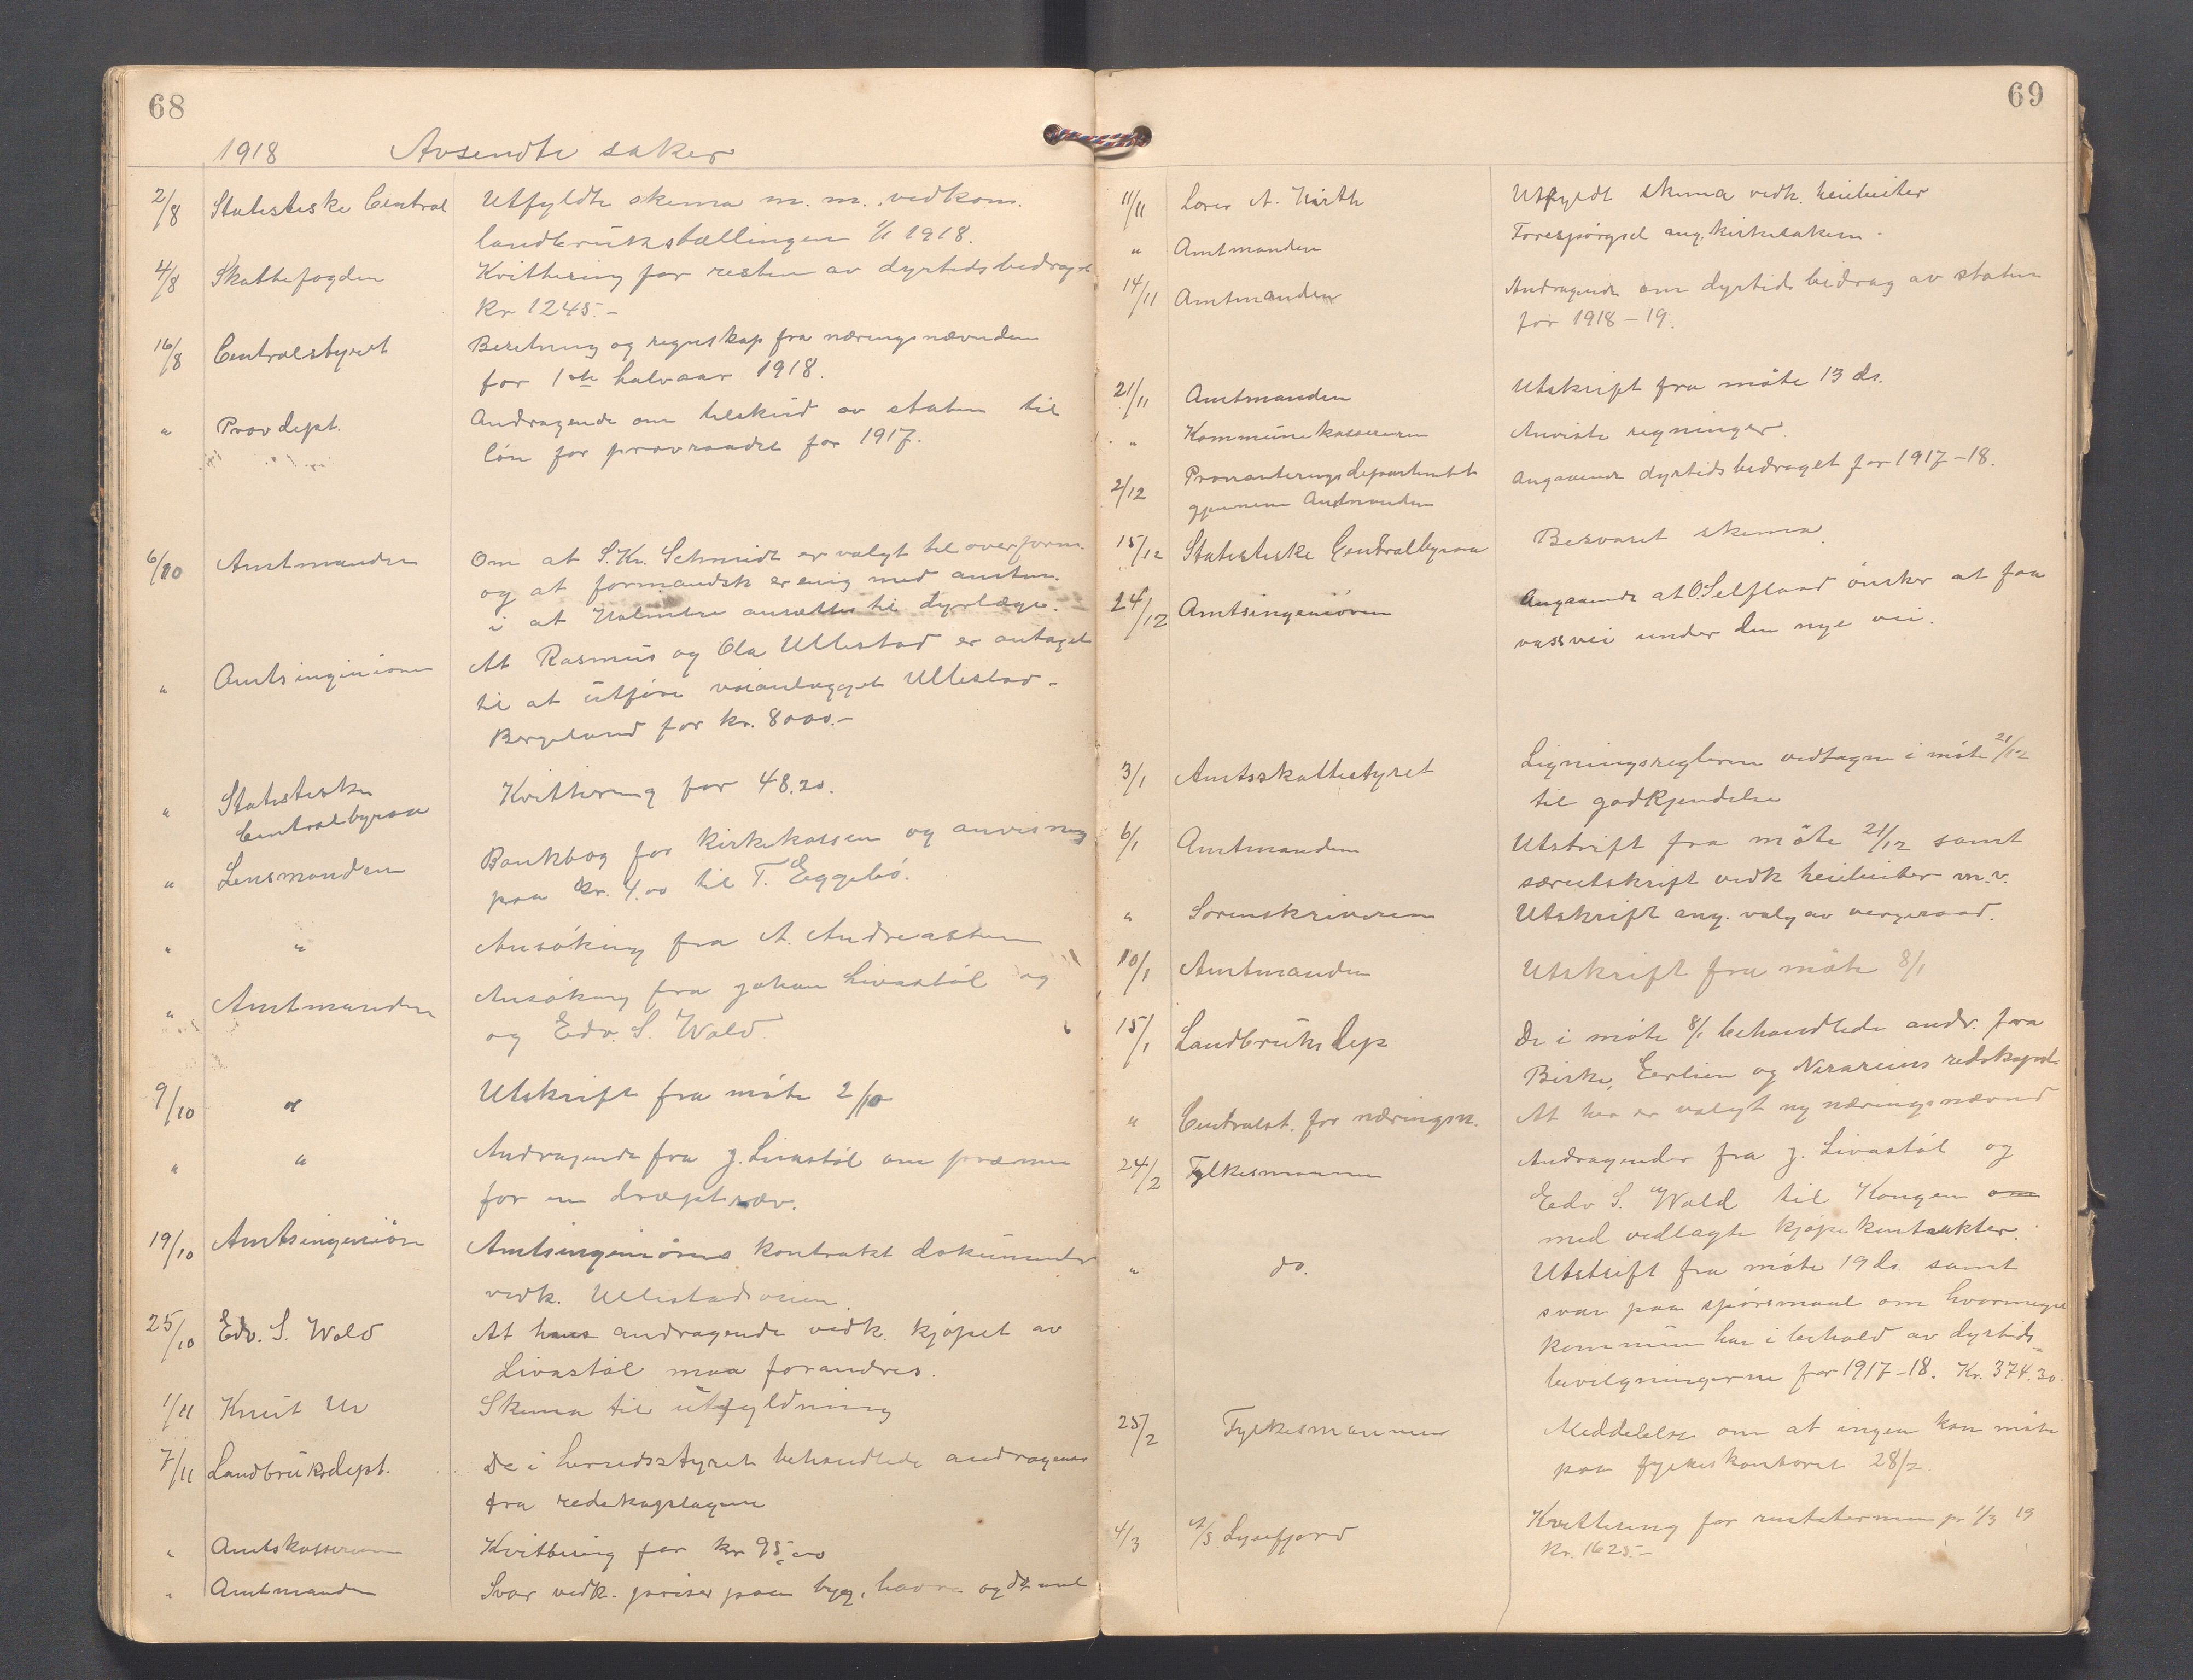 68
1918 Avsendte saker
2/8 Statistiske Central Utfyldte skema m. m. vedkom.
landbrukstællingen 1/1 1918.
4/8 Skattefogden Kvittering for resten av dyrtidsbedraget
Kr 1245.-
16/8 Centralstyret Beretning og regnskap fra næringsnævnden
for 1ste halvaar 1918.
" Provdept. Andragende om tilskud av staten til
løn for provraadet for 1917.
6/10 Amtmanden Om at S. Kr. Schmidt er valgt til overform.
og at formandsk er enig med amtm.
i at Holmter ansættes til dyrlæge.
" Amtsingeniøren At Rasmus og Ola Ullestad er antaget
til at utføre veianlægget Ullestad-
Bergeland for kr. 8000.-
" Statistiske
Centralbyraa Kvittering for 48.20.
" Lensmanden Bankbog for kirkekassen og anvisning
paa kr. 4.00 til T. Eggebø.
" " Ansøking fra A. Andreassen
" Amtmanden Ansøking fra Johan Livastøl og
og Edv. S. Wald
9/10 " Utskrift fra møte 2/10
" " Andragende fra J. Livastøl om præmie
for en dræpt ræv.
19/10 Amtsingeniøren Amtsingeniørens kontrakt dokumenter
vedk. Ullestadveien.
25/10 Edv. S. Wald At hans andragende vedk. kjøpet av
Livastøl maa forandres.
1/11 Knut Ur Skema til utfyldning
7/11 Landbruksdept. De i herredsstyret behandlede andragender
fra redskapslagene
" Amtskassereren Kvittering for kr 95.00
" Amtmanden Svar vedk. priser paa byg, havre og
69
11/11 Lærer A. Uirth Utfyldt skema vedk. heieheiter
" Amtmanden Forespørgsel ang. kirketaksen.
14/11 Amtmanden Andragende om dyrtidsbidrag av staten
for 1918-19.
21/11 Amtmanden Utskrift fra møte 13 ds.
" Kommunekassereren Anviste regninger.
2/12 Provianteringsdepartementet
gjennem Amtmanden Angaaende dyrtidsbedraget for 1917-18.
15/12 Statistiske Centralbyraa Besvaret skema.
24/12 Amtsingeniøren Angaaende at O. Selflaad ønsker at faa
vassvei under den nye vei.
3/1 Amtsskattestyret Ligningsreglerne vedtagne i møte 21/12
til godkjendelse
6/1 Amtmanden Utskrift fra møte 21/12 samt
særutskrift vedk heieheiter m. v.
" Sorenskriveren Utskrift ang. valg av vergeraad.
10/1 Amtmanden Utskrift fra møte 8/1
15/1 Landbruks dep De i møte 8/1 behandlede andr. fra
Birke, Eerlien og redskapsl.
" Centralst. for næringsn. At her er valgt ny næringsnævnd
24/2 Fylkesmannen Andragender fra J. Livastøl og
Edv S. Wald til Kongen om
med vedlagte kjøpekontrakter.
" do. Utskrift fra møte 19 ds. samt
svar paa spørsmaal om hvormeget
kommunen har i behold av dyrtids-
bevilgningerne for 1917-18. Kr. 374.30.
25/2 Fylkesmannen Meddelelse om at ingen kan møte
paa fylkeskontoret 28/2.
4/3 A/S Lysefjord Kvittering for rentetermin pr 1/3 19
Kr. 1625.-